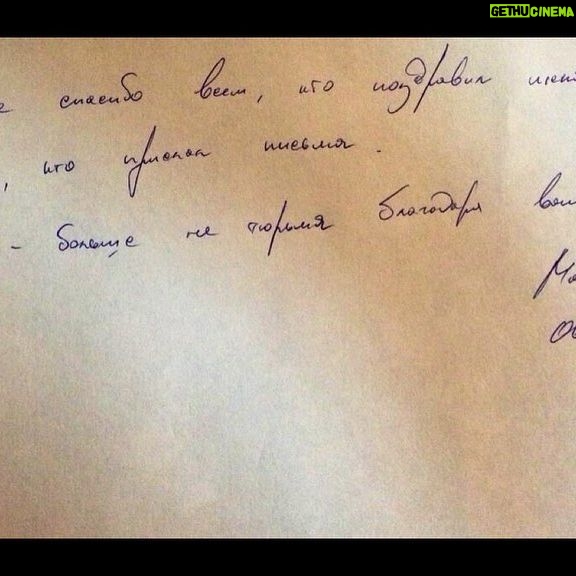 GETHUCINEMA
спасибо всем, кто поздравил
, кто прислал письма.
- больше не тюрьма благодаря вам